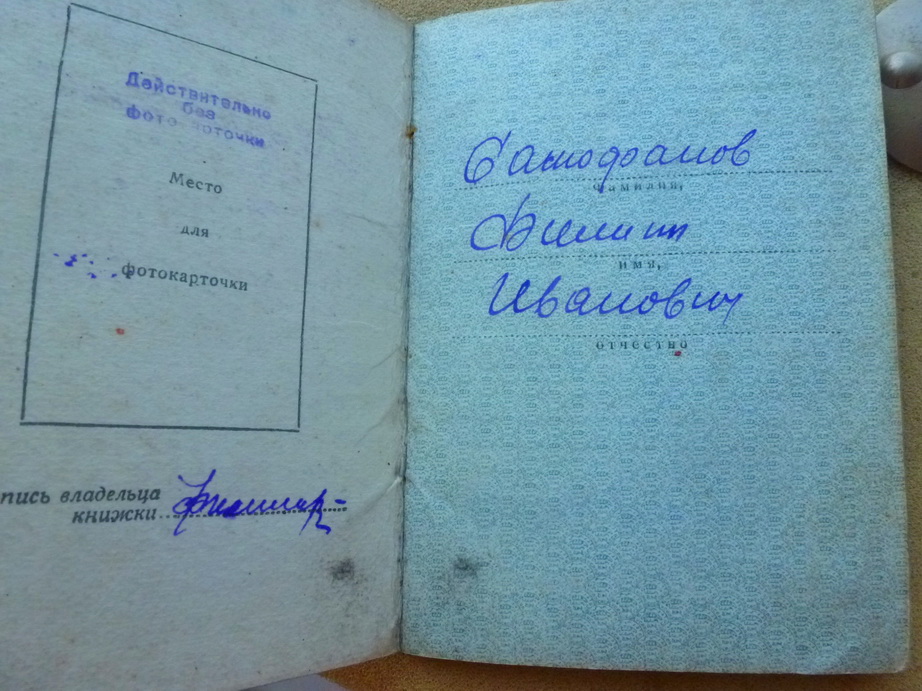 Действительно
без
фотокарточки
Место
для
фотокарточки
пись владельца
книжки
фамилия,
Филипп
имя,
Иванович
отчество